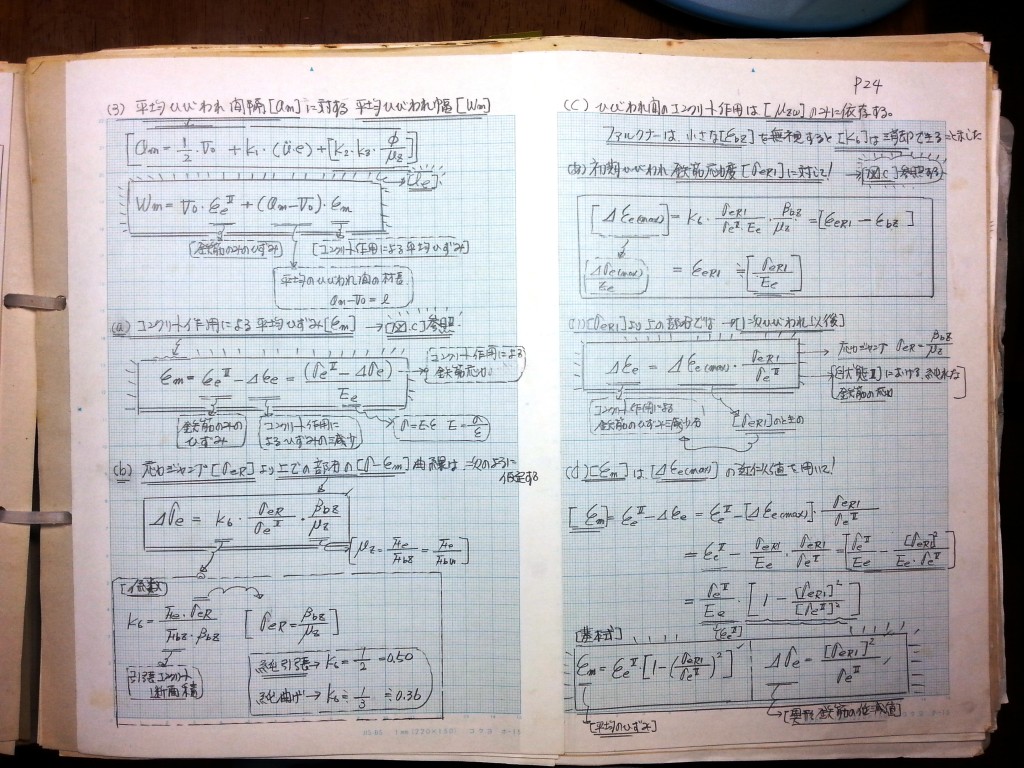 P24
(3) 平均ひびわれ間隔[am]に対する平均ひびわれ幅[Wm]
[am = 1/2・v0 + k1・(ü・e) + [k2・k3・φ/μz]]
Wm = v0・εeᴵᴵ + (am - v0)・εm
鉄筋のみのひずみ
[コンクリート作用による平均ひずみ]
平均のひびわれ間の材長
am - v0 = l
(a) コンクリート作用による平均ひずみ[εm] →[図.c]参照.
εm = εeᴵᴵ - Δεe = (σeᴵᴵ - Δσe)/Ee
コンクリート作用による
鉄筋応力
鉄筋のみの
ひずみ
コンクリート作用に
よるひずみの減少
σ=E・ε E=σ/ε
(b) 応力ジャンプ[σeR]より上での部分の[σ-εm]曲線は、次のように
仮定する
Δσe = k6・σeR/σeᴵᴵ・βbz/μz
[係数]
[σeR = βbz/μz]
純引張→ k6 = 1/2 = 0.50
純曲げ→ k6 ≒ 1/3 ≒ 0.36
引張コンクリート
断面積
(C) ひびわれ間のコンクリート作用は[μzw]のみに依存する。
ファルクナーは、小さな[εbz]を無視すると[k6]は消却できることを示した
(あ) 初期ひびわれ鉄筋応力度[σeR1]に対して!
→[図.c]参照する
[Δεe(max)] = k6・σeR1/(σeᴵᴵ・Ee)・βbz/μz = [εeR1 - εbz]
= εeR1 = [σeR1/Ee]
(い)[σeR1]より上の部分では →[1次ひびわれ以後]
Δεe = Δεe(max)・σeR1/σeᴵᴵ
応力ジャンプ σeR = βbz/μz
[状態II]における、純水な
鉄筋の応力
コンクリート作用による
鉄筋のひずみ減少分
[σeR1]のときの
(d)[εm]は[Δεe(max)]の変化値を用いて!
[εm] = εeᴵᴵ - Δεe = εeᴵᴵ - [Δεe(max)]・σeR1/σeᴵᴵ
= εeᴵᴵ - σeR1/Ee・σeR1/σeᴵᴵ = [σeᴵᴵ/Ee - [σeR1]²/(Ee・σeᴵᴵ)]
= σeᴵᴵ/Ee・[1 - [σeR1]²/[σeᴵᴵ]²]
[εeᴵᴵ]
[基本式]
εm = εeᴵᴵ[1-(σeR1/σeᴵᴵ)²]
Δσe = [σeR1]²/σeᴵᴵ
[平均のひずみ]
[異形鉄筋の低減値]